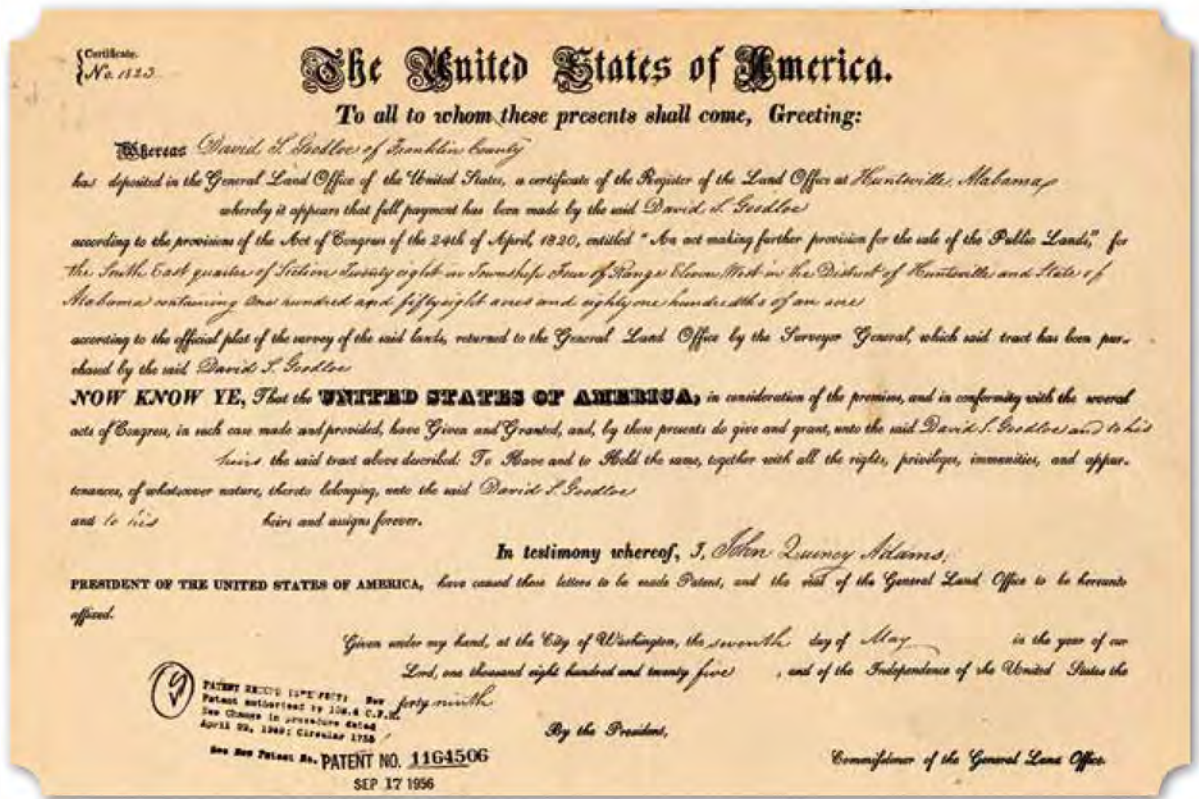 Certificate.
No. 1823
The United States of America.
To all to whom these presents shall come, Greeting:
Whereas David S. Goodloe of Franklin County
has deposited in the General Land Office of the United States, a certificate of the Register of the Land Office at Huntsville, Alabama,
whereby it appears that full payment has been made by the said David S. Goodloe
according to the provisions of the Act of Congress of the 24th of April, 1820, entitled "An act making further provision for the sale of the Public Lands," for
the South East quarter of Section Twenty eight in Township Four of Range Eleven West in the District of Huntsville and State of
Alabama containing one hundred and fifty eight acres and eighty one hundredths of an acre
according to the official plat of the survey of the said lands, returned to the General Land Office by the Surveyor General, which said tract has been pur-
chased by the said David S. Goodloe
NOW KNOW YE, That the UNITED STATES OF AMERICA, in consideration of the premises, and in conformity with the several
acts of Congress, in such case made and provided, have Given and Granted, and, by these presents do give and grant, unto the said David S. Goodloe and to his
heirs the said tract above described: To Have and to Hold the same, together with all the rights, privileges, immunities, and appur-
tenances, of whatsoever nature, thereto belonging, unto the said David S. Goodloe
and to his heirs and assigns forever.
In testimony whereof, I, John Quincy Adams,
PRESIDENT OF THE UNITED STATES OF AMERICA, have caused these letters to be made Patent, and the seal of the General Land Office to be hereunto
affixed.
Given under my hand, at the City of Washington, the seventh day of May in the year of our
Lord, one thousand eight hundred and twenty five, and of the Independence of the United States the
forty ninth
PATENT RECORD New
Patent authorized by C.F.R.
See Change in procedure dated
April Circular
By the President,
See New Patent No. PATENT NO. 1164506
SEP 17 1956
Commissioner of the General Land Office.